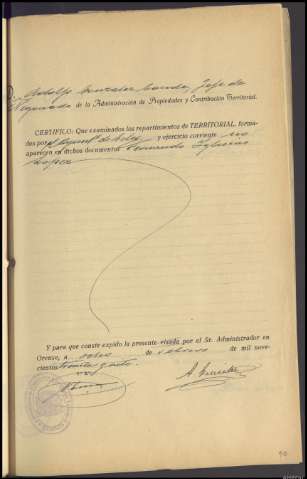 Adolfo Gonzalez, Jefe de
Negociado de la Administración de Propiedades y Contribución Territorial.
CERTIFICO: Que examinados los repartimientos de TERRITORIAL, forma-
dos por y ejercicio corriente no
aparecen en dichos documentos Fernando Iglesias
Lopez
Y para que conste expido la presente visada por el Sr. Administrador en
Orense, a ocho de Febrero de mil nove-
cientos treinta y ocho.